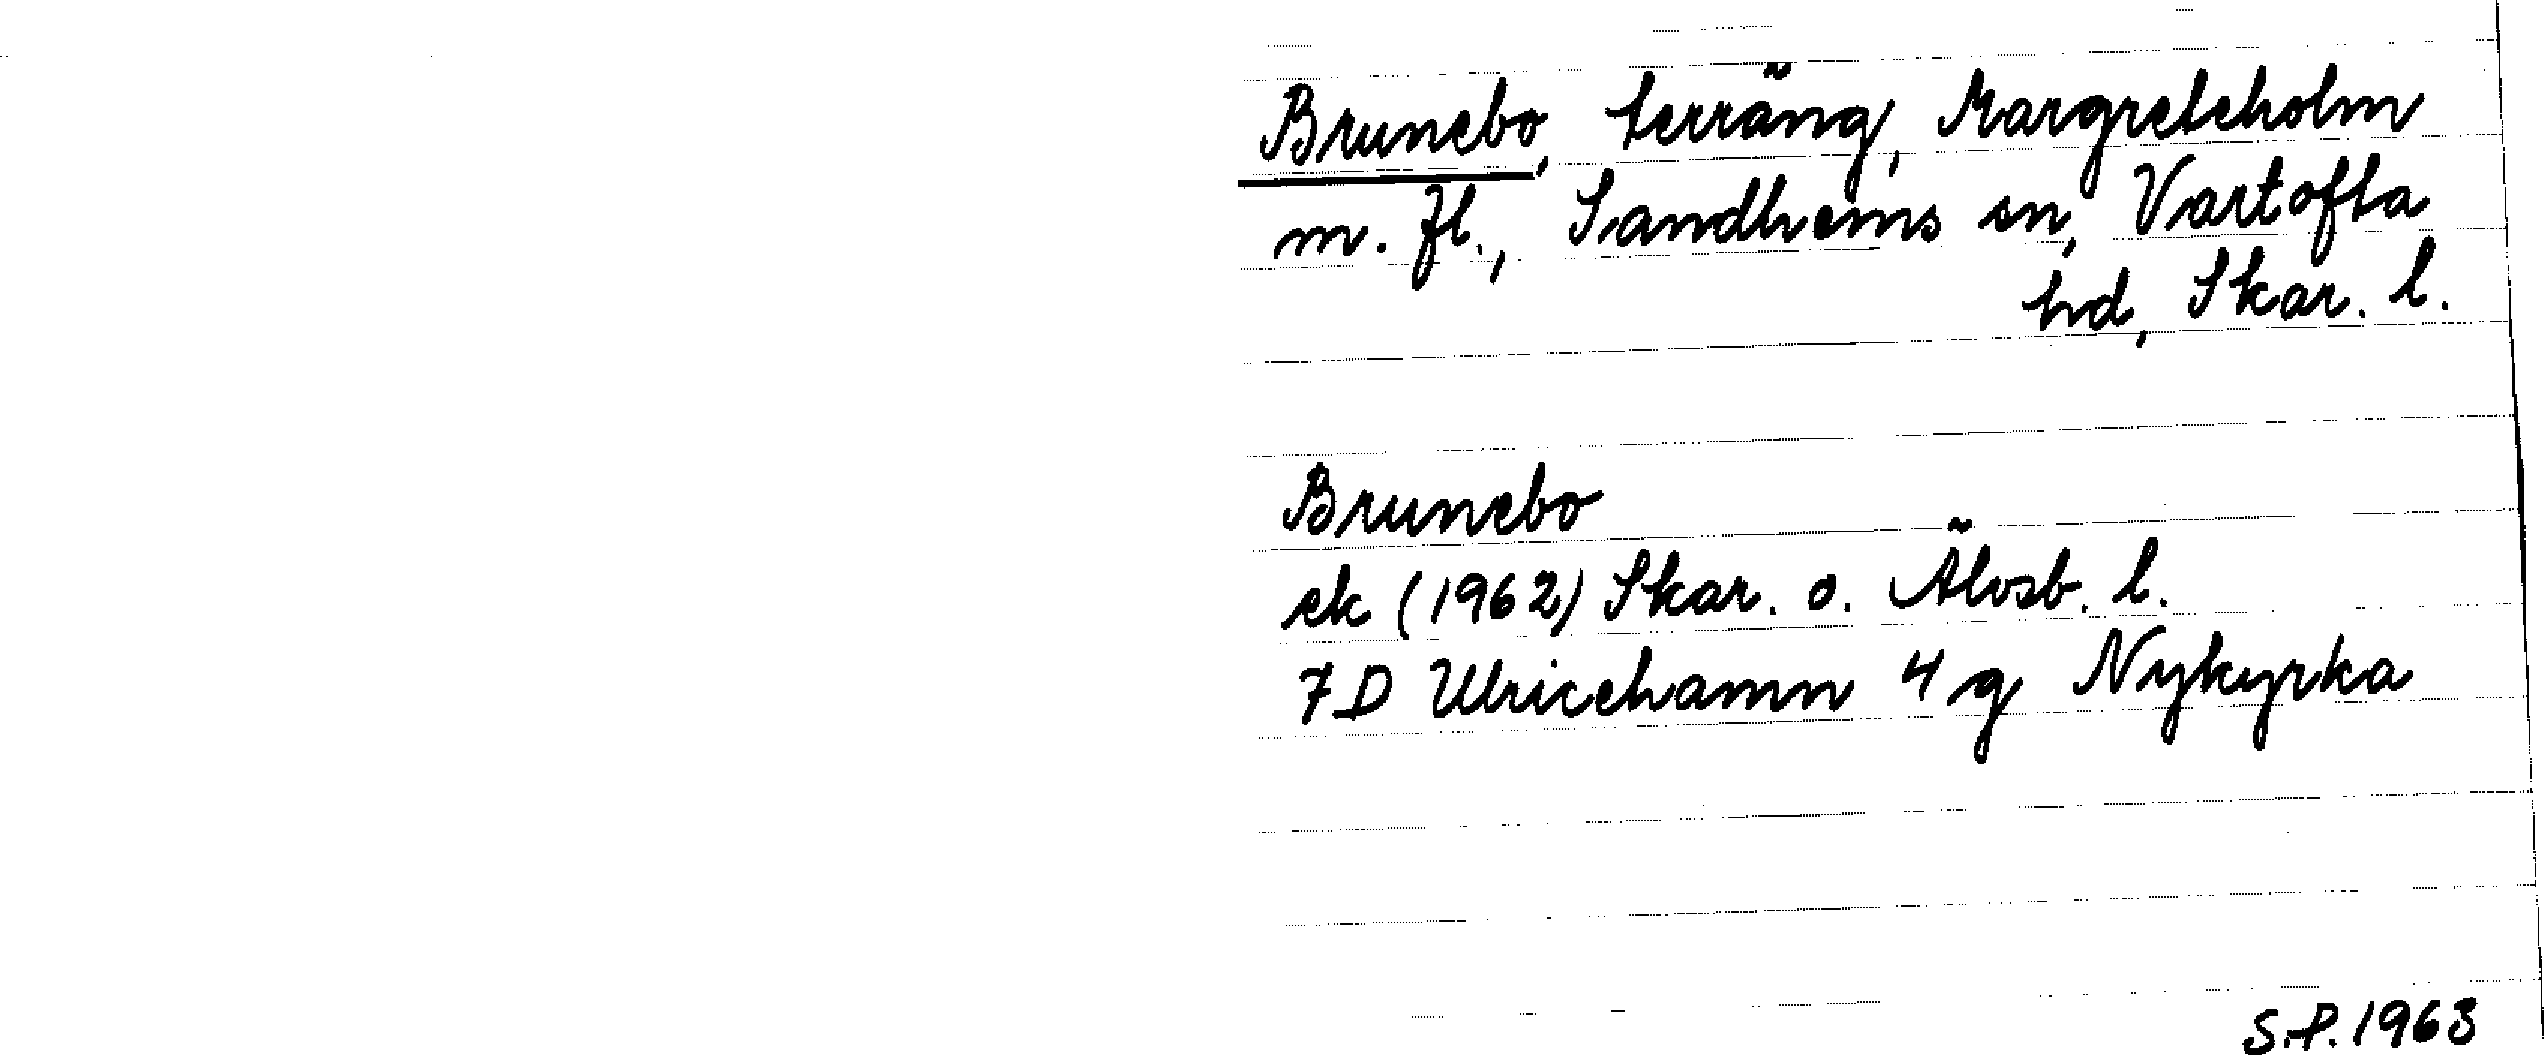 Brunebo, terräng, Margreteholm
m. fl., Sandhems sn, Vartofta
hd, Skar. l.
Brunebo
ek (1962) Skar. o. Älvsb. l.
7D Ulricehamn 4g Nykyrka
S.P. 1963